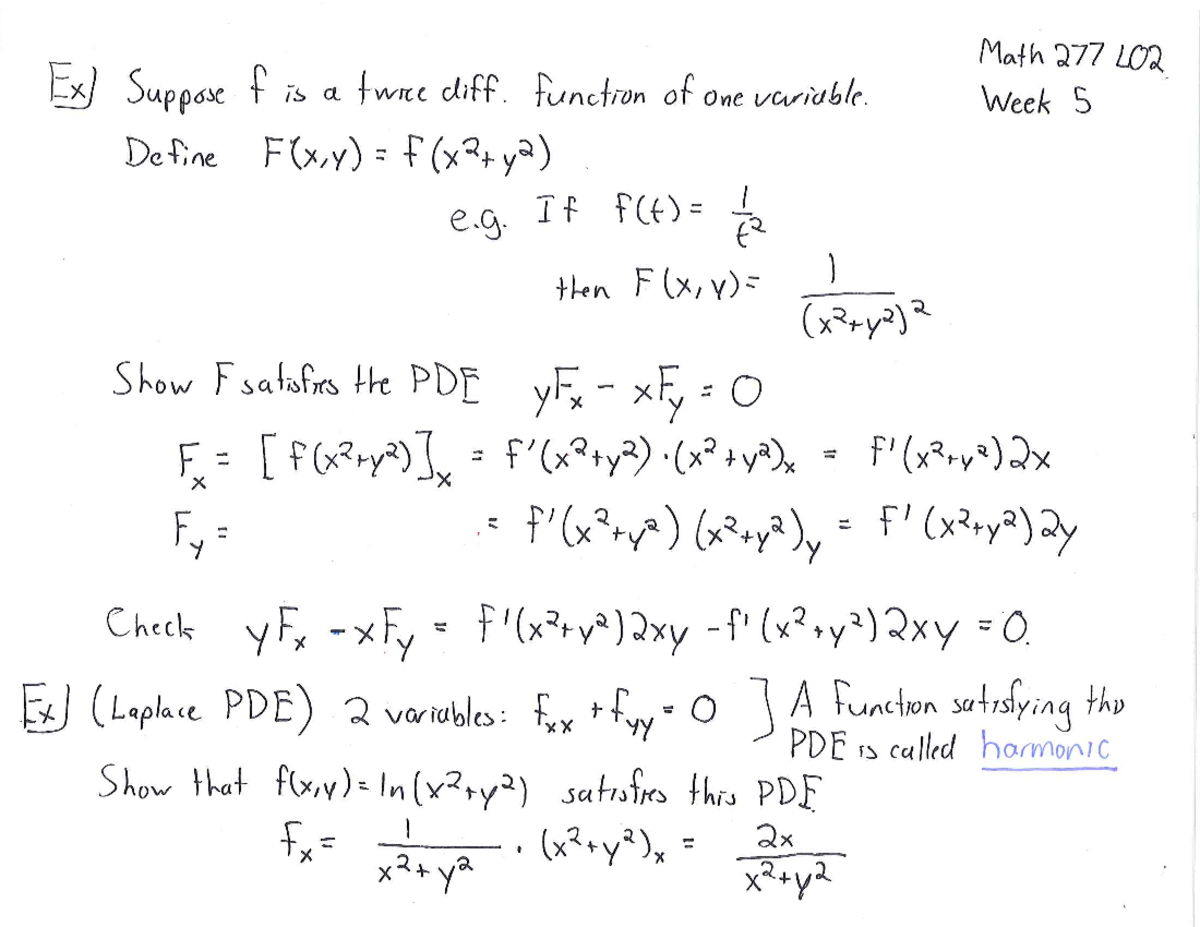 Math 277 L02
Week 5
Ex) Suppose f is a twice diff. function of one variable.
Define F(x,y) = f(x²+y²)
e.g. If f(t) = 1/t²
then F(x,y) = 1/(x²+y²)²
Show F satisfies the PDE yFₓ - xF_y = 0
Fₓ = [f(x²+y²)]ₓ = f'(x²+y²)·(x²+y²)ₓ = f'(x²+y²)2x
F_y = = f'(x²+y²)(x²+y²)_y = f'(x²+y²)2y
Check yFₓ - xF_y = f'(x²+y²)2xy - f'(x²+y²)2xy = 0.
Ex) (Laplace PDE) 2 variables: fₓₓ + f_yy = 0 ] A function satisfying this
PDE is called harmonic
Show that f(x,y) = ln(x²+y²) satisfies this PDE
fₓ = 1/(x²+y²) · (x²+y²)ₓ = 2x/(x²+y²)